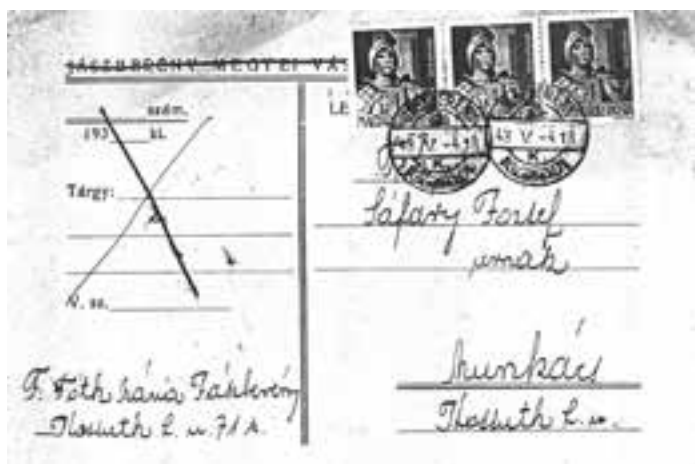 JÁSZBERÉNY MEGYEI VÁ
LE
szám.
193 ki.
Tárgy:
V. sz.
43 V -4 18
Sáfáry József
urnak
Munkács
Kossuth L. u.
F. Tóth Mária Jászberény
Kossuth L. u. 71 A.